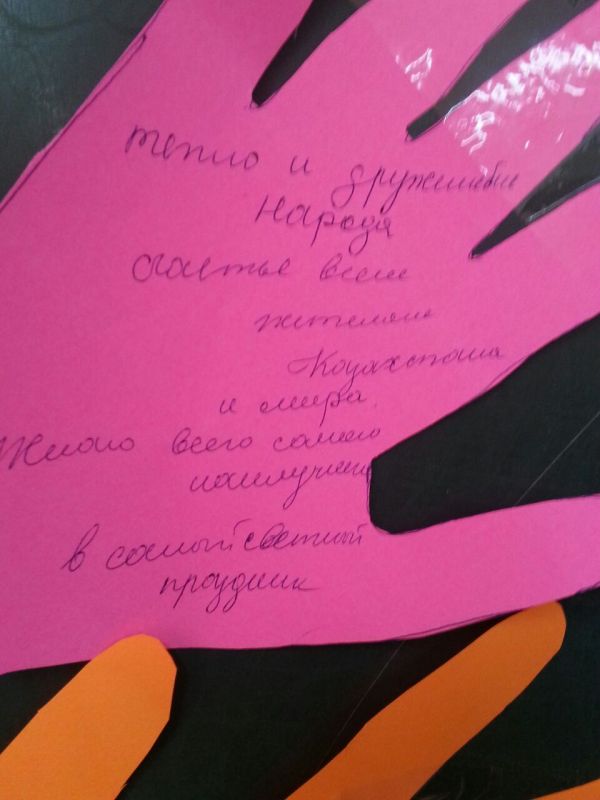 тепло и дружелюбие
народа
счастье всем
жителям
Казахстана
и мира.
Желаю всего самого
наилучшего
в самый светлый
праздник